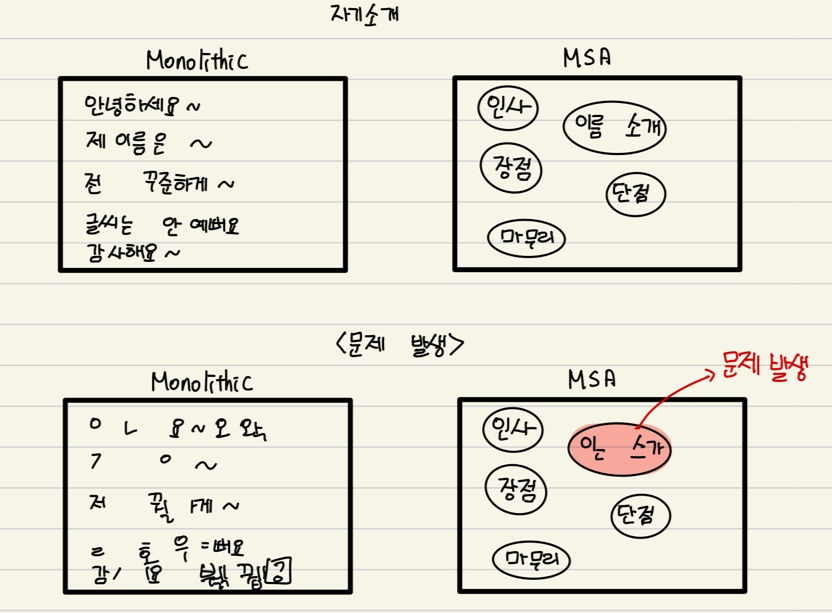 자기소개
Monolithic
안녕하세요 ~
제 이름은 ~
전 꾸준하게 ~
글씨는 안 예뻐요
감사해요 ~
MSA
인사
이름 소개
장점
단점
마무리
<문제 발생>
Monolithic
ㅇ ㄴ 요 ~ 오
ㄱ ㅇ ~
저 게 ~
ㄹ 호 우 = 뻐요
감/
MSA
문제 발생
인사
장점
단점
마무리